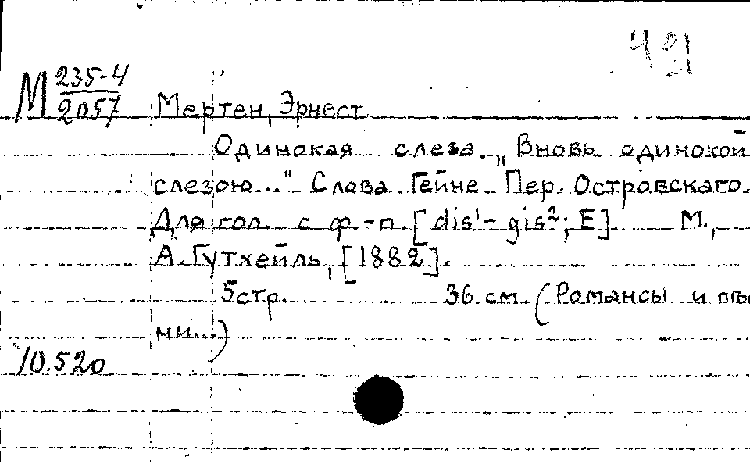 М 235-4
2057
Мертен, Эрнест
Одинокая слеза. „Вновь одинокой
слезою..." Слова Гейне Пер. Островскаго.
Для гол. с ф.-п. [dis¹- gis²; E] М.,
А. Гутхейль, [1882].
5стр. 36 см. (Романсы и пѣс
ни...)
10.520